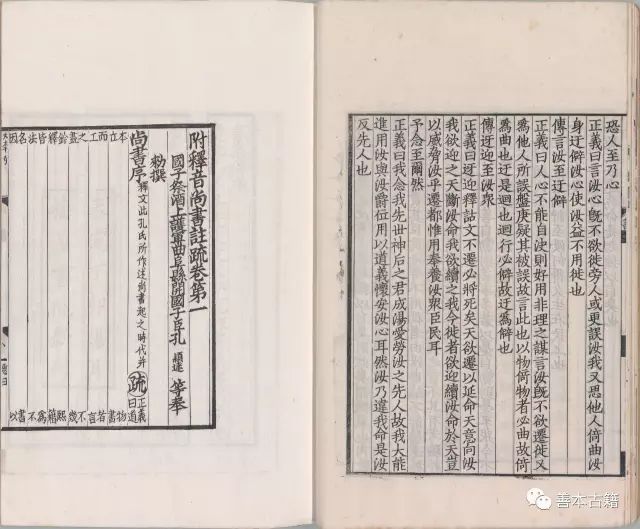 恐人至乃心
正義曰言汝心既不欲徙旁人或更誤汝我又恐他人倚曲汝
身迂僻汝心使汝益不用徙也
傳言汝至迂僻
正義曰人心不能自決則好用非理之謀言汝既不欲遷徙又
為他人所誤盤庚疑其被誤故言此也以物倚物者必曲故倚
為曲也迂是迴也迴行必僻故迂為僻也
傳迓迎至汝衆
正義曰迓迎釋詁文不遷必將死矣天欲遷以延命天意向汝
我欲迎之天斷汝命我欲續之我今徙者欲迎續汝命於天豈
以威脅汝乎遷都惟用奉養汝衆臣民耳
予念至爾然
正義曰我念我先世神后之君成湯愛勞汝之先人故我大能
進用汝與汝爵位用以道義懷安汝心耳然汝乃違我命是汝
反先人也
附釋音尚書註疏卷第一
國子祭酒上護軍曲阜縣開國子臣孔 穎達 等奉
勑撰
尚書序 釋文此孔氏所作述尚書起之時代并
疏 正義曰道
善本古籍